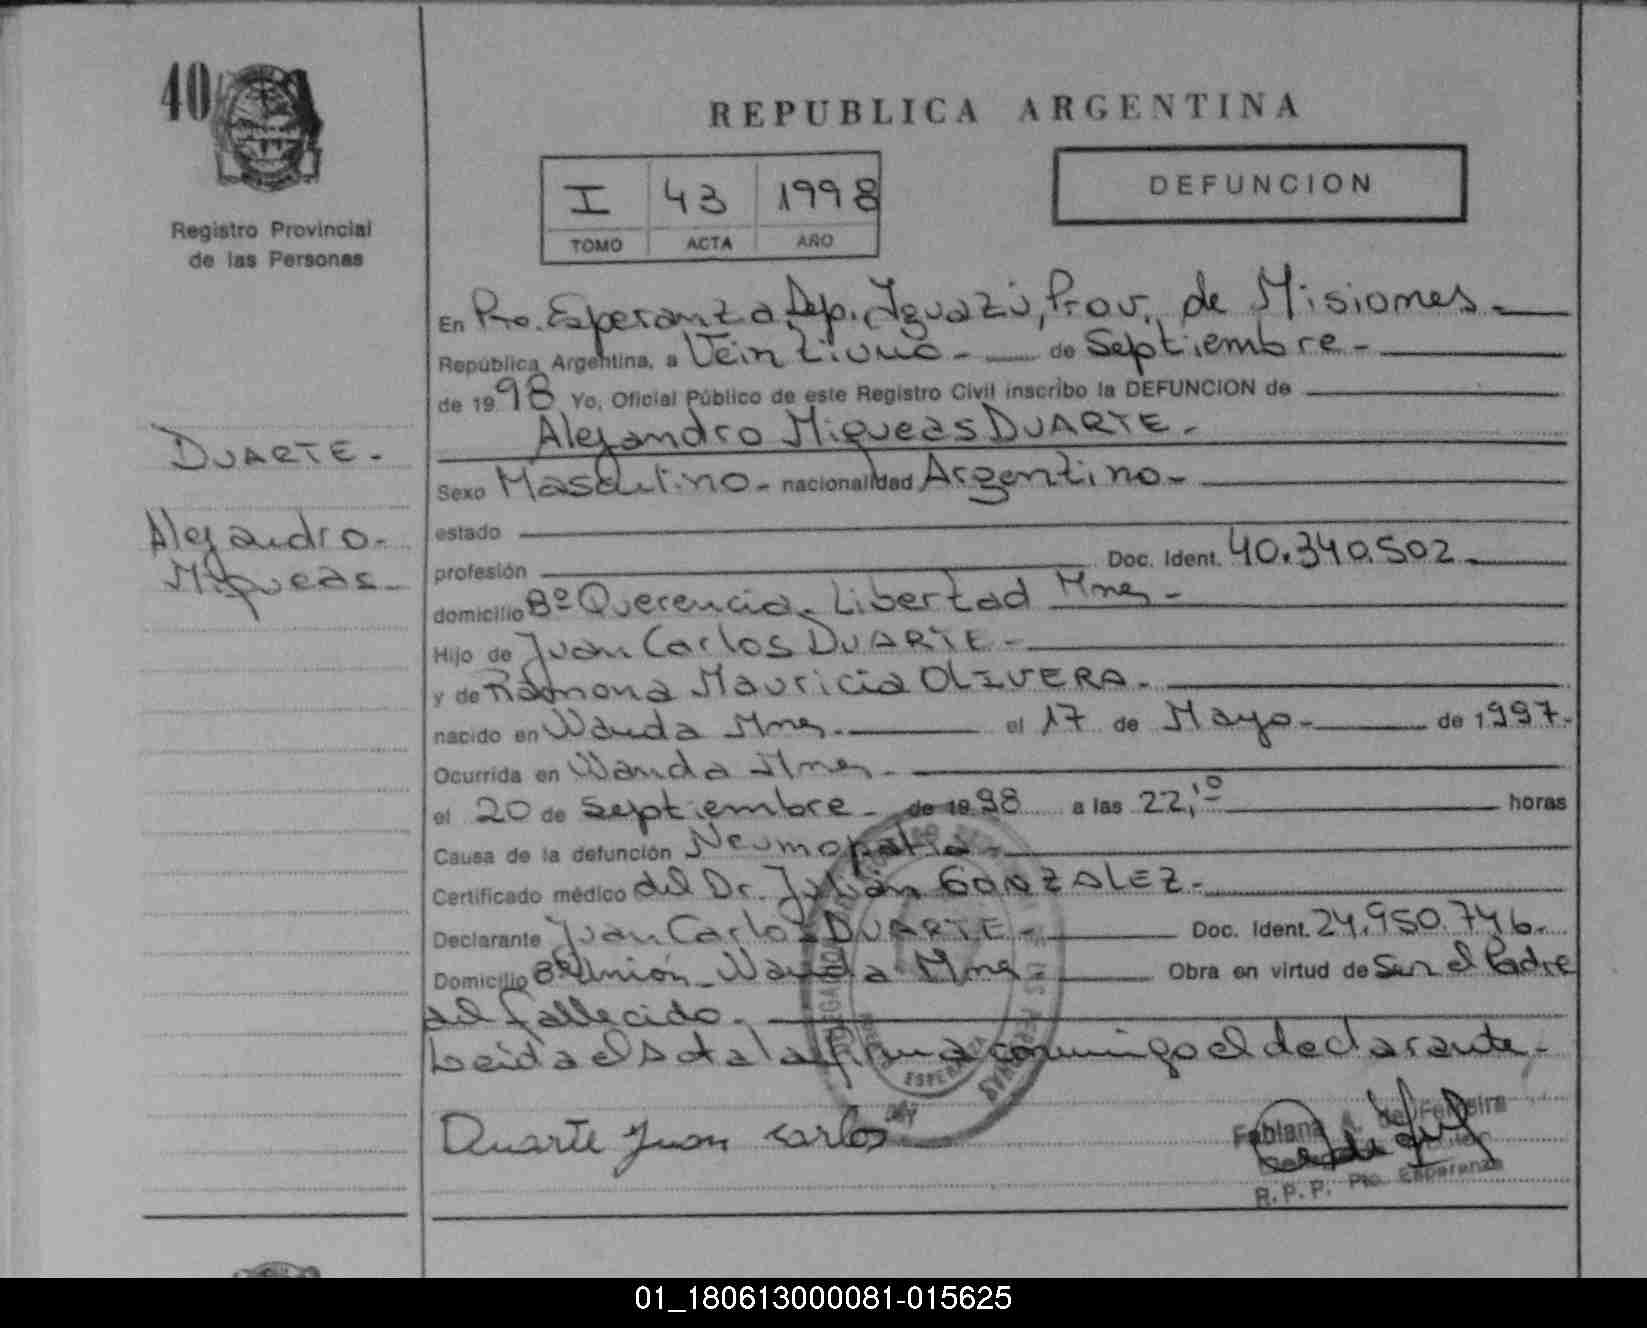 40
Registro Provincial
de las Personas
DUARTE.-
Alejandro-
Miqueas-
REPUBLICA ARGENTINA
I 43 1998
TOMO ACTA AÑO
DEFUNCION
En Pto. Esperanza, Dep. Iguazú, Prov. de Misiones-
República Argentina, a Veintiuno- de Septiembre-
de 1998 Yo, Oficial Público de este Registro Civil inscribo la DEFUNCION de
Alejandro Miqueas DUARTE-
Sexo Masculino- nacionalidad Argentino-
estado
profesión Doc. Ident. 40.340.502-
domicilio Bº Querencia. Libertad Mnes-
Hijo de Juan Carlos DUARTE-
y de Ramona Mauricia OLIVERA.
nacido en Wanda Mnes. el 17 de Mayo- de 1997.
Ocurrida en Wanda Mnes.
el 20 de Septiembre- de 1998 a las 22,10 horas
Causa de la defunción Neumopatía-
Certificado médico del Dr. Julián GONZALEZ-
Declarante Juan Carlos DUARTE- Doc. Ident. 24.950.746.
Domicilio Bº Unión- Wanda Mnes- Obra en virtud de Ser el Padre
del fallecido.
Leída el acta la firma conmigo el declarante-
Duarte Juan Carlos
Fabiana A. de Ferreira
R.P.P. Pto. Esperanza
01_180613000081-015625